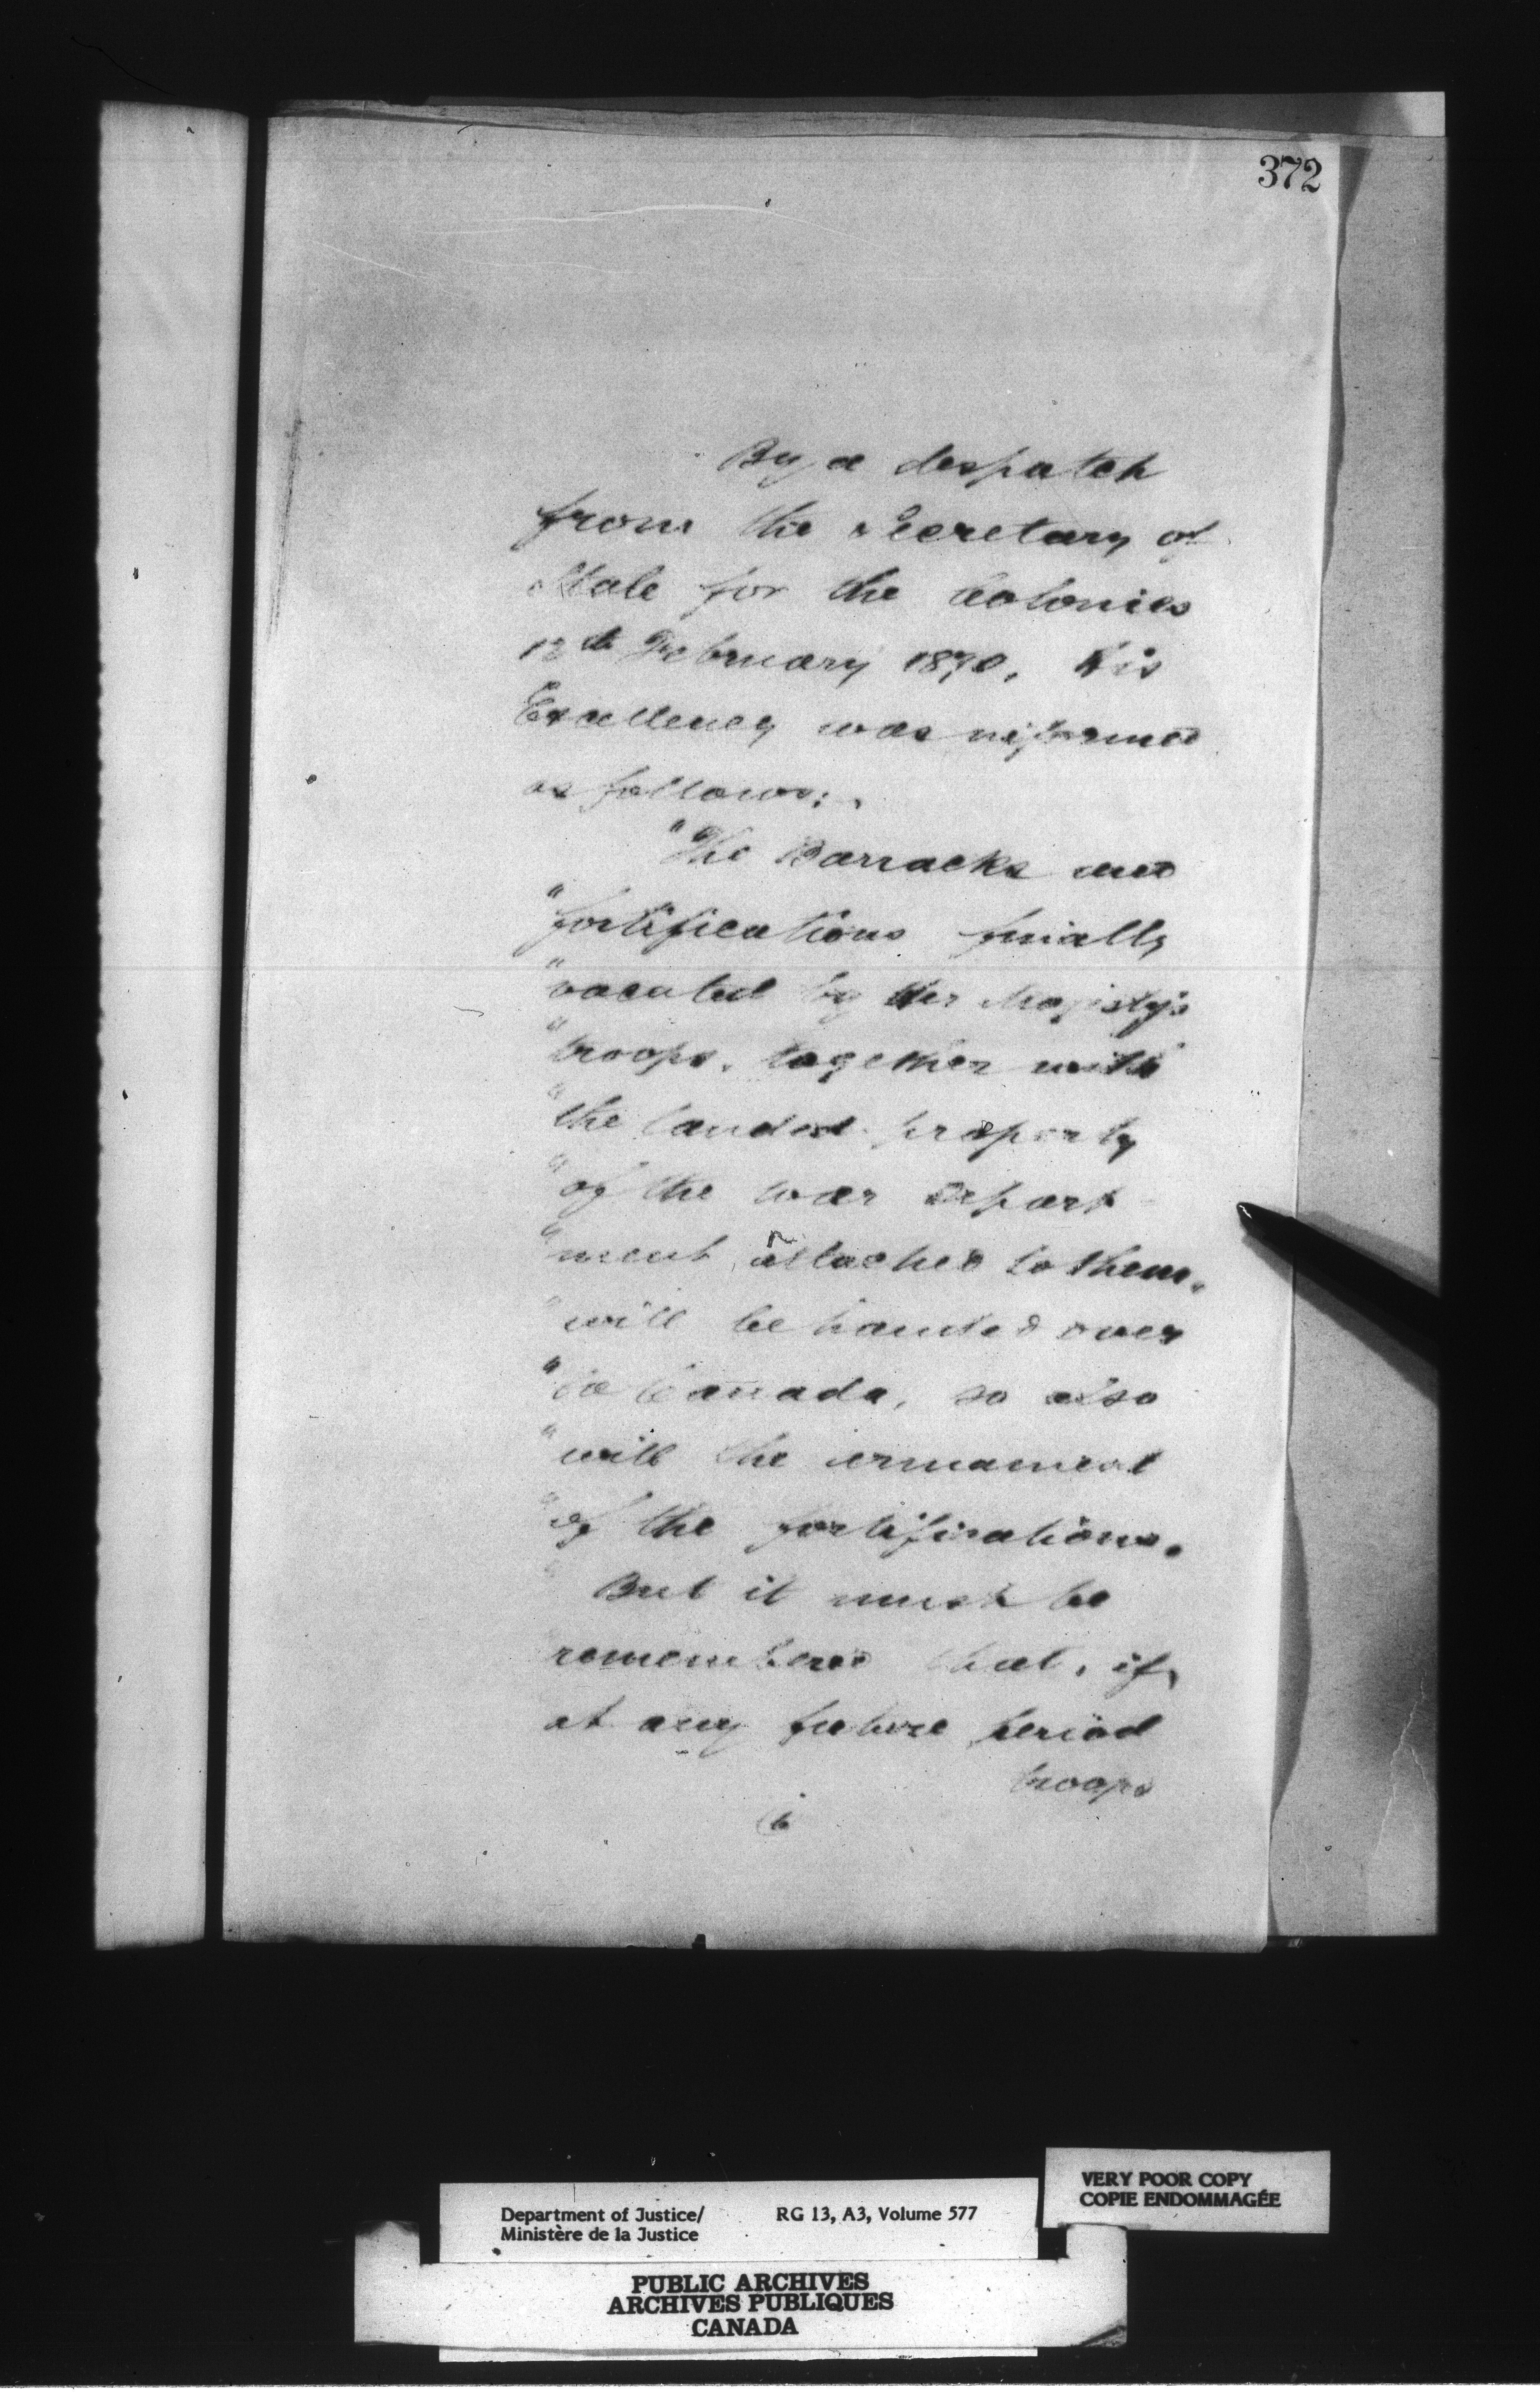 372
By a despatch
from the Secretary of
State for the Colonies
12th February 1870, His
Excellency was informed
as follows:
"The Barracks and
"fortifications finally
"vacated by Her Majesty's
"troops, together with
"the landed property
"of the War Depart
"ment attached to them,
"will be handed over
"to Canada, so also
"will the armament
"of the fortifications.
" But it must be
remembered that, if,
at any future period
troops
6
VERY POOR COPY
COPIE ENDOMMAGÉE
Department of Justice/ RG 13, A3, Volume 577
Ministère de la Justice
PUBLIC ARCHIVES
ARCHIVES PUBLIQUES
CANADA